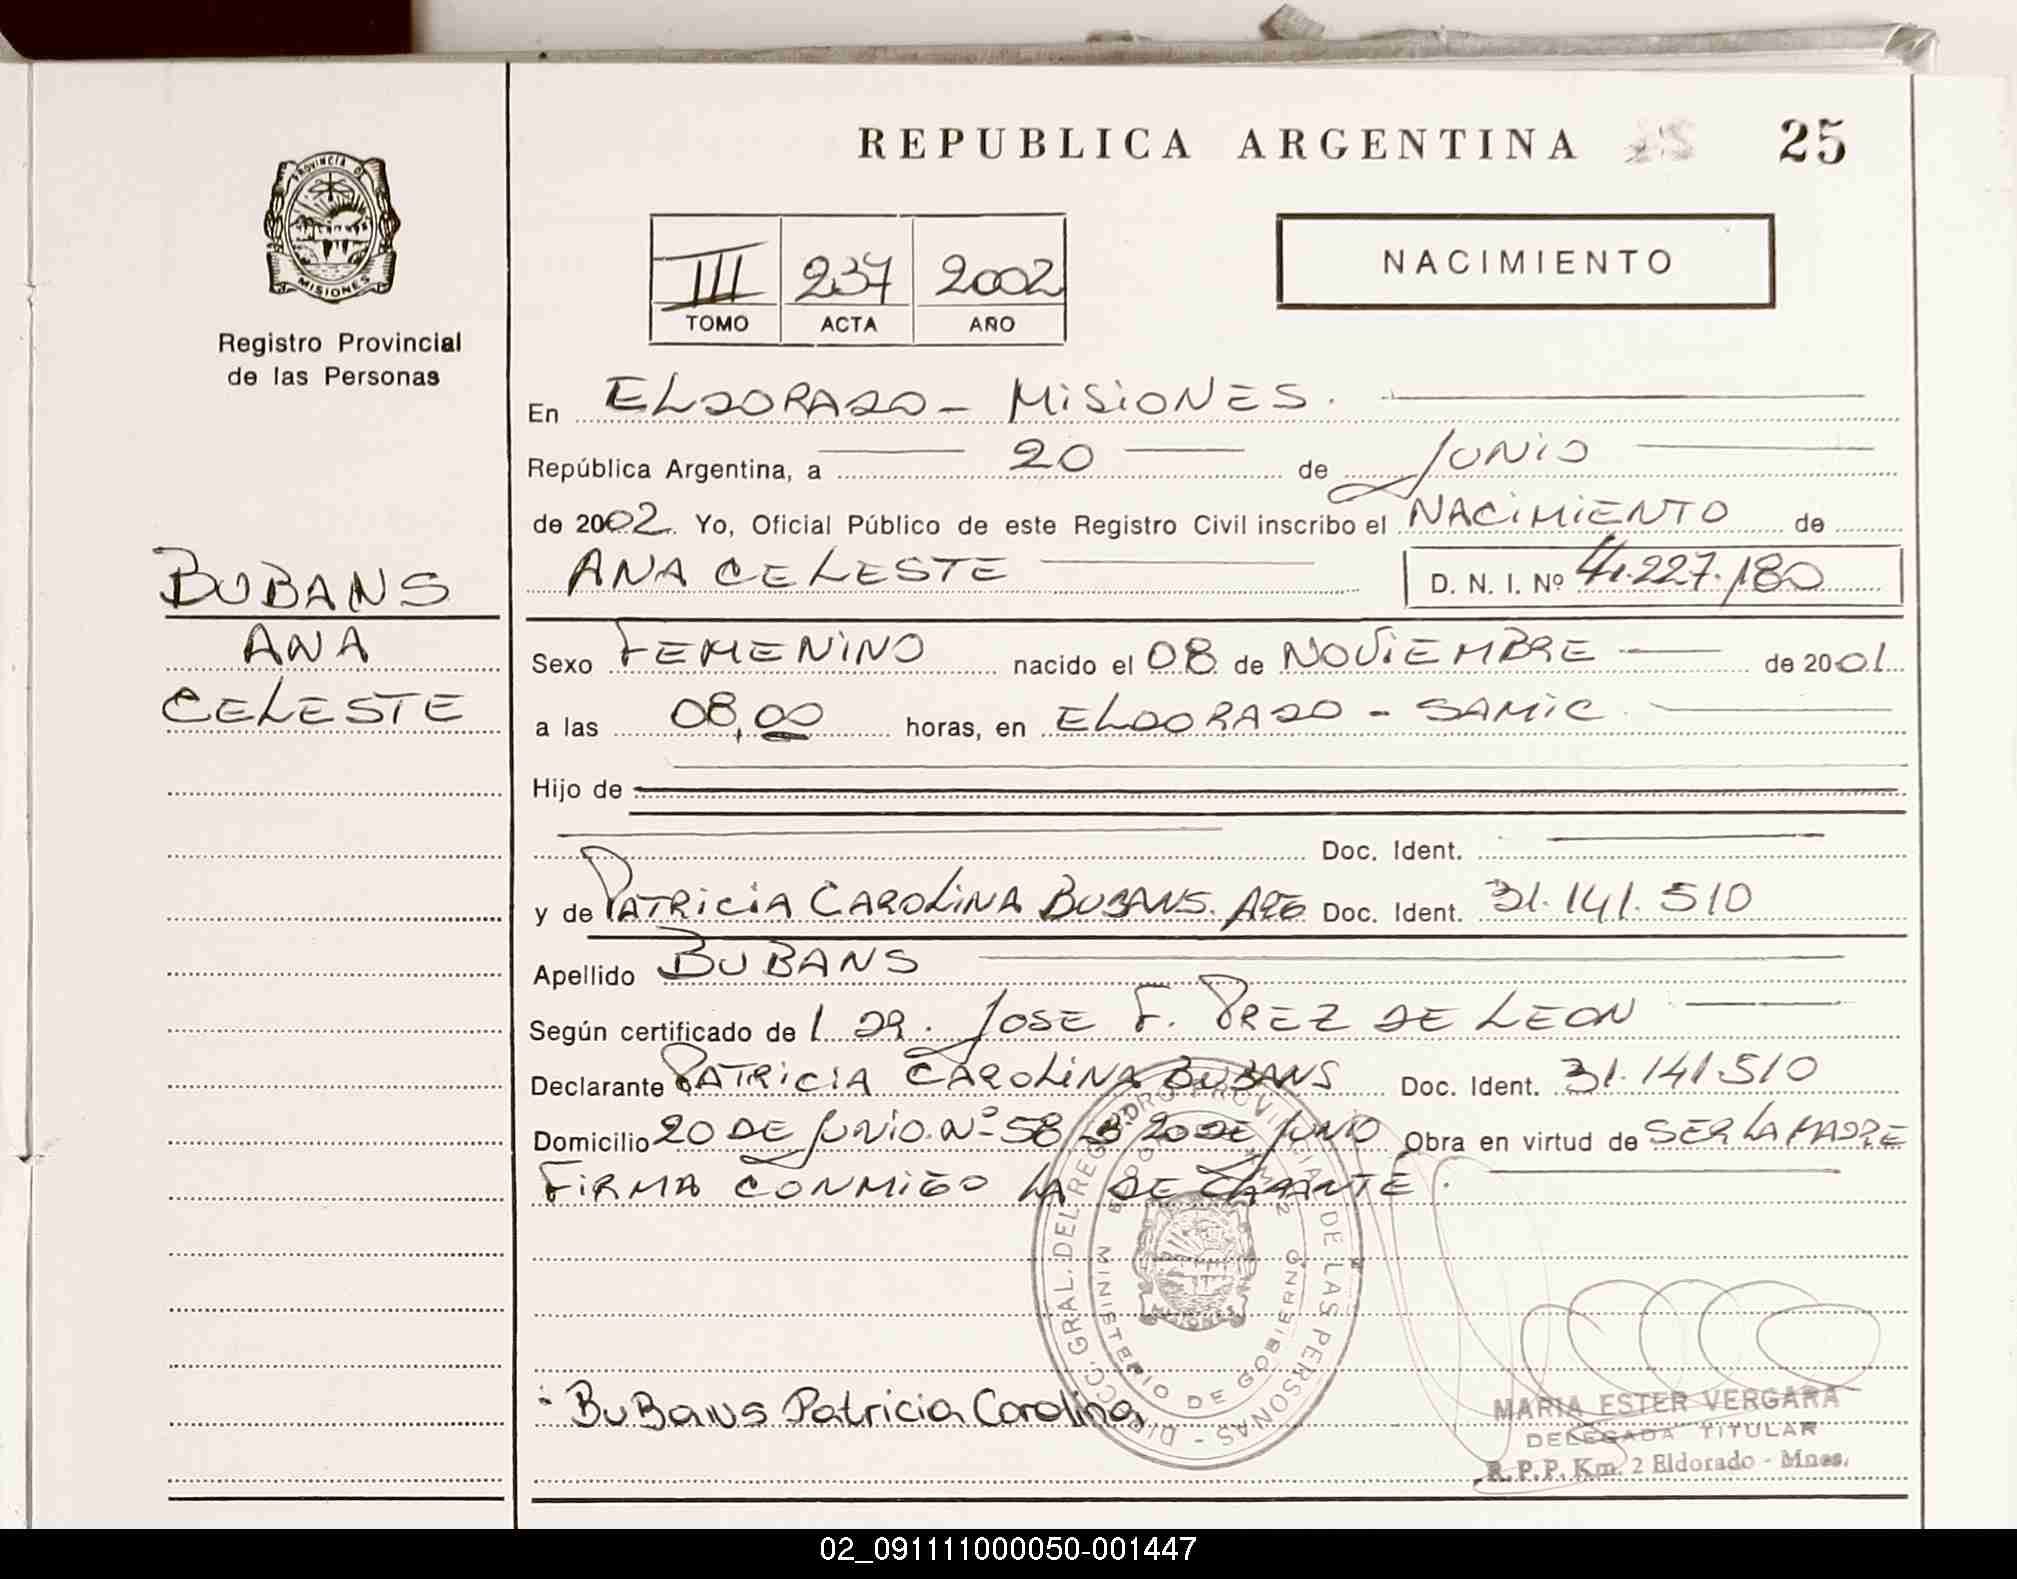 REPUBLICA ARGENTINA 25
PROVINCIA DE
MISIONES
Registro Provincial
de las Personas
III 237 2002
TOMO ACTA AÑO
NACIMIENTO
En ELDORADO - MISIONES.
República Argentina, a 20 de JUNIO
de 2002. Yo, Oficial Público de este Registro Civil inscribo el NACIMIENTO de
ANA CELESTE D. N. I. Nº 41.227.180
BUBANS
ANA
CELESTE
Sexo FEMENINO nacido el 08 de NOVIEMBRE de 2001
a las 08,00 horas, en ELDORADO - SAMIC
Hijo de
Doc. Ident.
y de PATRICIA CAROLINA BUBANS. ARG Doc. Ident. 31.141.510
Apellido BUBANS
Según certificado de l DR. JOSE F. PREZ DE LEON
Declarante PATRICIA CAROLINA BUBANS Doc. Ident. 31.141.510
Domicilio 20 DE JUNIO Nº 58 Bº 20 DE JUNIO Obra en virtud de SER LA MADRE
FIRMA CONMIGO LA DECLARANTE.
DIRECC. GRAL. DEL REGISTRO PROVINCIAL DE LAS PERSONAS
MINISTERIO DE GOBIERNO
MISIONES
BUBANS Patricia Carolina
MARIA ESTER VERGARA
DELEGADA TITULAR
R.P.P. Km. 2 Eldorado - Mnes.
02_091111000050-001447